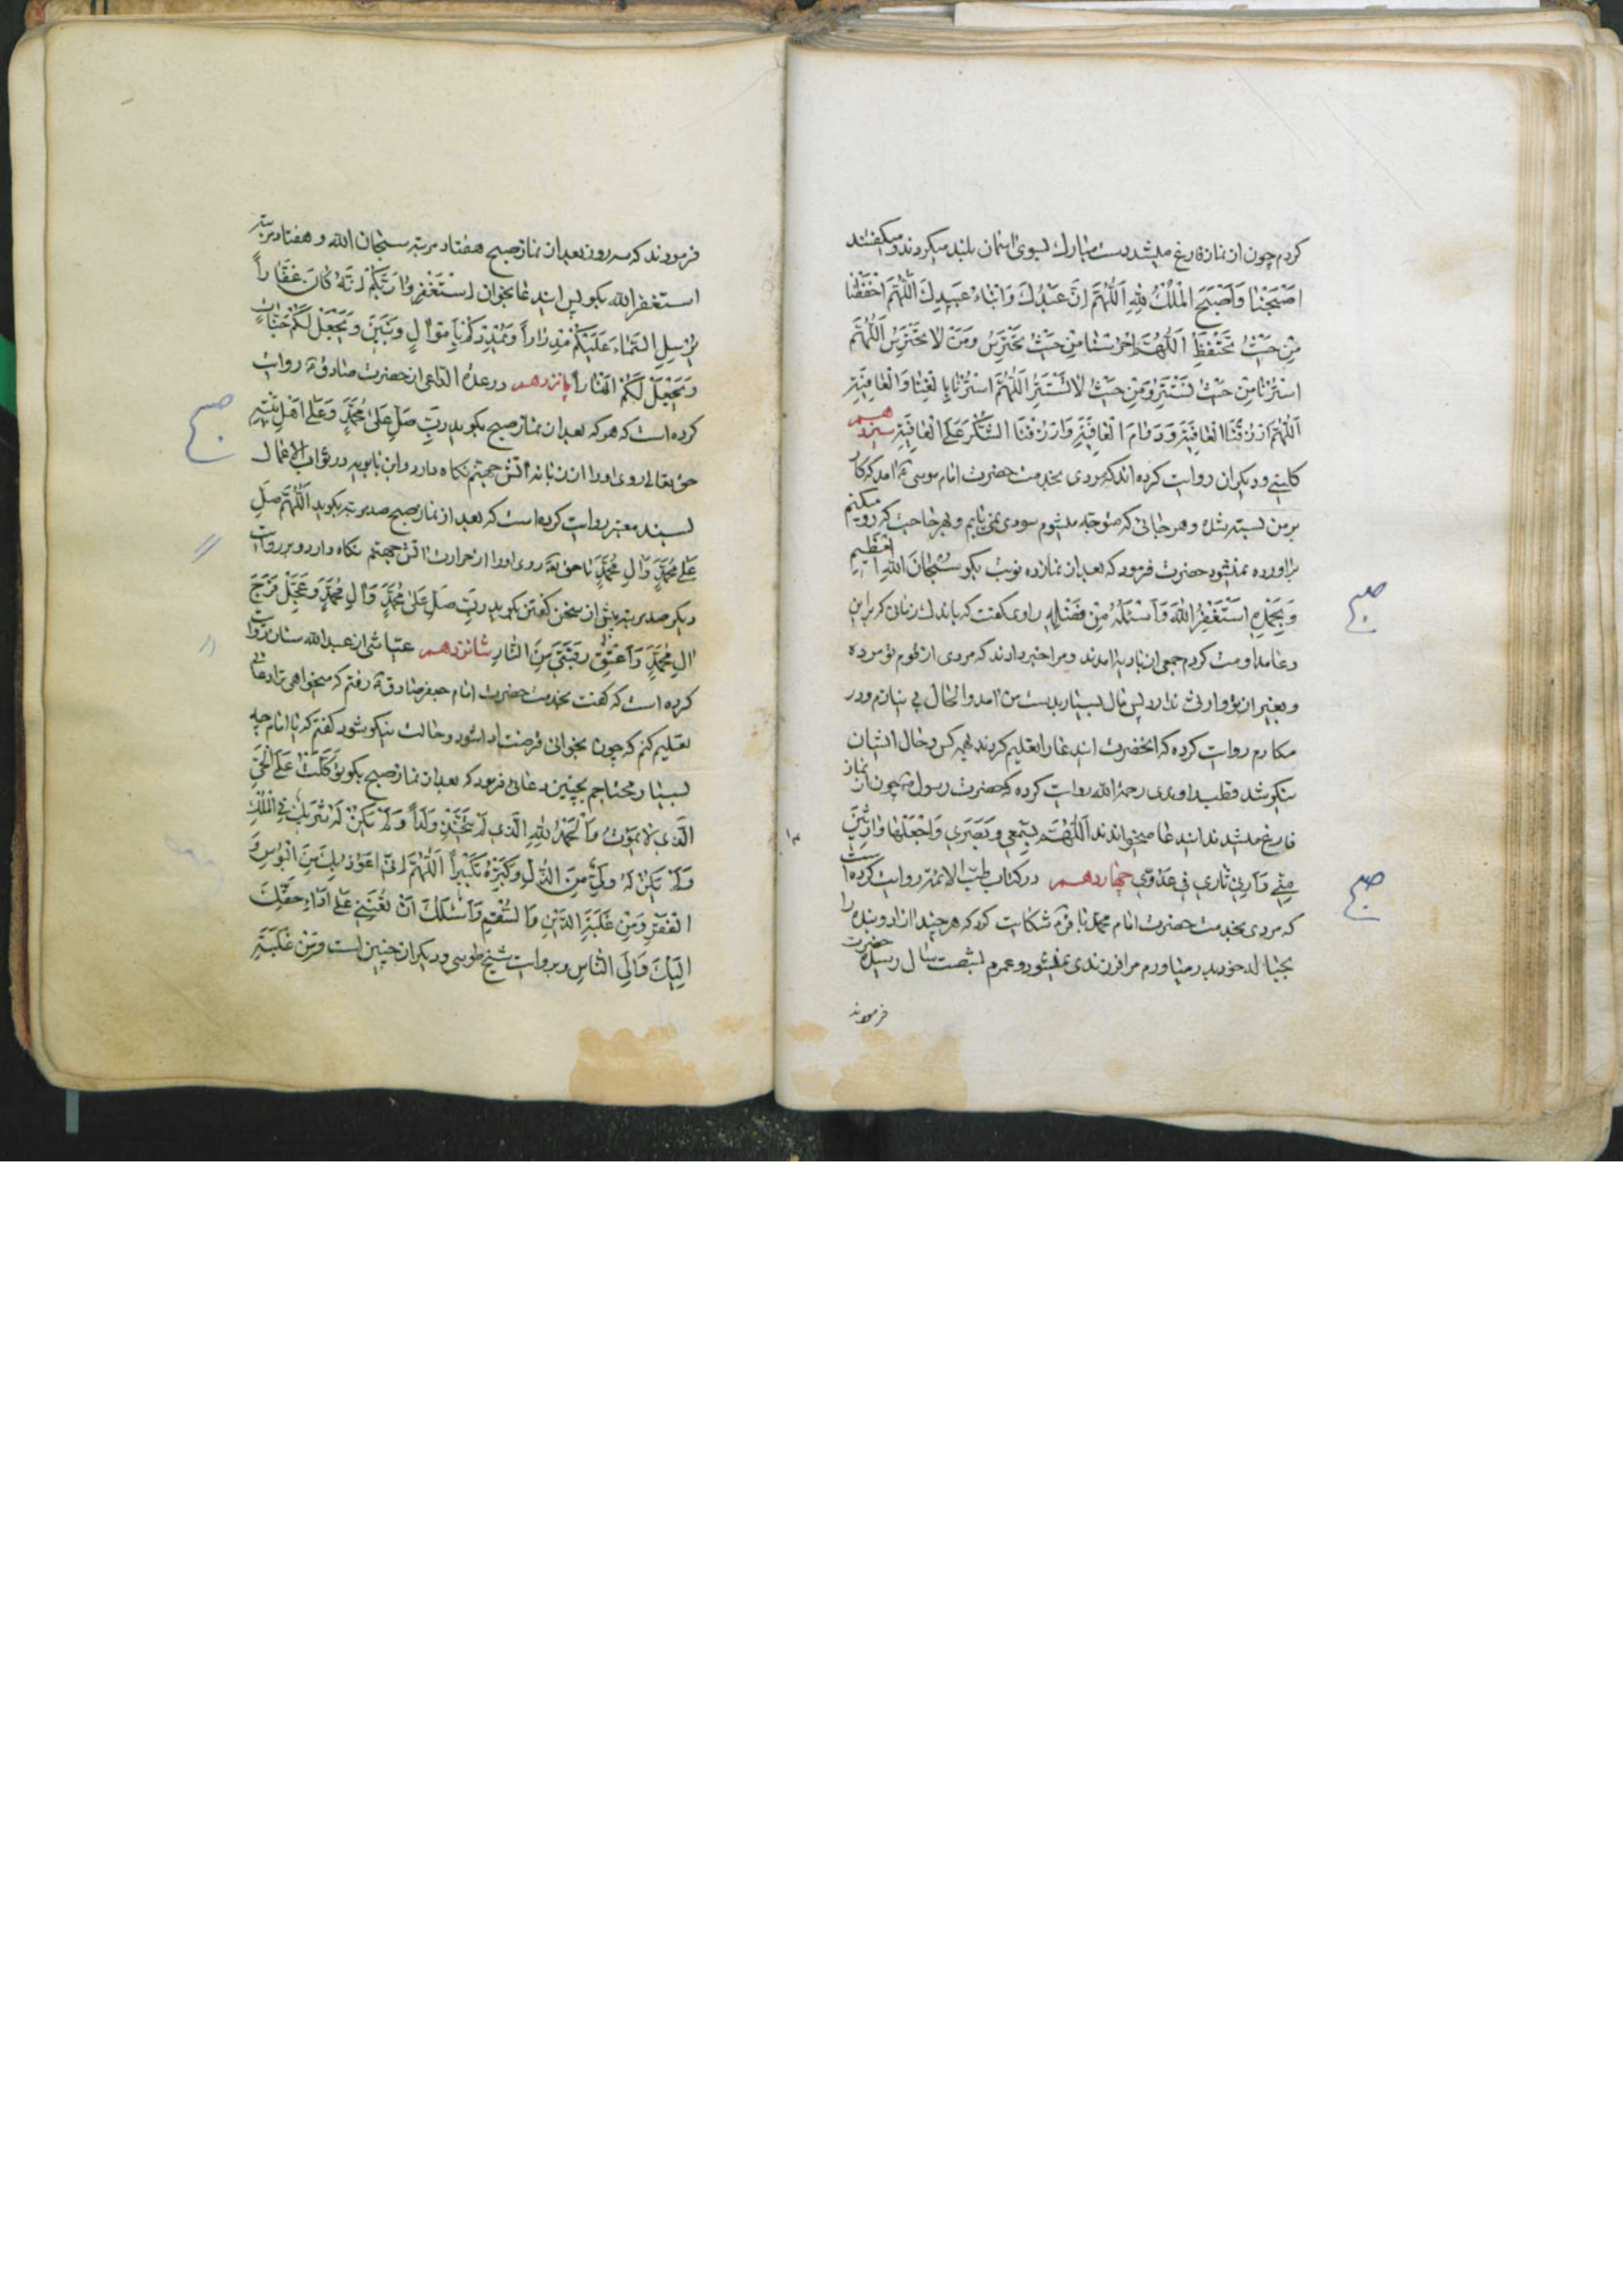 کردم چون از نماز فارغ میشد دست مبارك بسوی اسمان بلند میکردند و میکفتند
اَصْبَحْنا وَاَصْبَحَ الْمُلْكُ لِلّٰهِ اَللّٰهُمَّ اِنَّ عَبْدُكَ وَابْناءُ عَبِيدِكَ اَللّٰهُمَّ احْفَظْنا
مِنْ حَيْثُ نَحْتَفِظُ اَللّٰهُمَّ احْرُسْنا مِنْ حَيْثُ نَحْتَرِسُ وَمِنْ لا نَحْتَرِسُ اَللّٰهُمَّ
اسْتُرْنا مِنْ حَيْثُ نَسْتَتِرُ وَمِنْ حَيْثُ لا نَسْتَتِرُ اَللّٰهُمَّ اسْتُرْنا بِالْغِنا وَالْعافِيَةِ
اَللّٰهُمَّ ارْزُقْنَا الْعافِيَةَ وَدَوامَ الْعافِيَةِ وَارْزُقْنَا الشُّكْرَ عَلَى الْعافِيَةِ سیزدهم
کلینی و دیکران روایت کرده اند که مردی بخدمت حضرت امام موسی ع امد که کار
بر من بسته شده و هر جانی که متوجه میشوم سودی نمی یابم و بهر حاجت که رو میکنم
براورده نمیشود حضرت فرمود که بعد از نماز ده نوبت بکو سُبْحانَ اللّٰهِ الْعَظِيمِ
وَبِحَمْدِهِ اَسْتَغْفِرُ اللّٰهَ وَاَسْئَلُهُ مِنْ فَضْلِهِ راوی کفت که باندك زمانی که بر این
دعا مداومت کردم جمعی از بادیه امدند و مرا خبر دادند که مردی از قوم تو مرده
و بغیر از تو وارثی ندارد پس مال بسیار بدست من امد و الحال بی نیازم و در
مکارم روایت کرده که انحضرت این دعا را تعلیم کردند بهر کس و حال ایشان
نیکو شد قطب راوندی رحمه الله روایت کرده که حضرت رسول ص چون از نماز
فارغ میشدند این دعا میخواندند اَللّٰهُمَّ بِسَمْعِي وَبَصَرِي وَاجْعَلْهَا وارِثَيْنِ
مِنِّي وَاَرِنِي ثارِي فِي عَدُوِّي چهاردهم در کتاب طب الائمه روایت کرده است
که مردی بخدمت حضرت امام محمد باقر ع شکایت کرد که هر چند ازاد و بنده را
بحباله خود در میاورم مرا فرزندی نمیشود و عمرم بشصت سال رسیده حضرت
فرمودند
صبح
صبح
فرمودند که سه روز بعد از نماز صبح هفتاد مرتبه سبحان الله و هفتاد مرتبه
استغفر الله بکو پس این دعا بخوان اِسْتَغْفِرُوا رَبَّكُمْ اِنَّهُ كانَ غَفَّاراً
يُرْسِلِ السَّماءَ عَلَيْكُمْ مِدْراراً وَيُمْدِدْكُمْ بِاَمْوالٍ وَبَنِينَ وَيَجْعَلْ لَكُمْ جَنَّاتٍ
وَيَجْعَلْ لَكُمْ اَنْهاراً پانزدهم در عدة الداعی از حضرت صادق ع روایت
کرده است که هر که بعد از نماز صبح بکوید رَبِّ صَلِّ عَلىٰ مُحَمَّدٍ وَعَلىٰ اَهْلِ بَيْتِهِ
حق تعالی روی او را از زبانه اتش جهنم نکاه دارد و ابن بابویه در ثواب الاعمال
بسند معتبر روایت کرده است که بعد از نماز صبح صد مرتبه بکوید اَللّٰهُمَّ صَلِّ
عَلىٰ مُحَمَّدٍ وَآلِ مُحَمَّدٍ تا حق تع روی او را از حرارت اتش جهنم نکاه دارد و بروایت
دیکر صد مرتبه پیش از سخن کفتن بکوید رَبِّ صَلِّ عَلىٰ مُحَمَّدٍ وَآلِ مُحَمَّدٍ وَعَجِّلْ فَرَجَ
آلِ مُحَمَّدٍ وَاَعْتِقْ رَقَبَتِي مِنَ النَّارِ شانزدهم عیاشی از عبد الله سنان روایت
کرده است که کفت بخدمت حضرت امام جعفر صادق ع رفتم که میخواهی ترا دعائی
تعلیم کنم که چون بخوانی قرضت ادا شود و حالت نیکو شود کفتم که یا امام چه
بسیار محتاجم بچنین دعائی فرمود که بعد از نماز صبح بکو تَوَكَّلْتُ عَلَى الْحَيِّ
الَّذِي لا يَمُوتُ وَالْحَمْدُ لِلّٰهِ الَّذِي لَمْ يَتَّخِذْ وَلَداً وَلَمْ يَكُنْ لَهُ شَرِيكٌ فِي الْمُلْكِ
وَلَمْ يَكُنْ لَهُ وَلِيٌّ مِنَ الذُّلِّ وَكَبِّرْهُ تَكْبِيراً اَللّٰهُمَّ اِنِّي اَعُوذُ بِكَ مِنَ الْبُؤْسِ وَ
الْفَقْرِ وَمِنْ غَلَبَةِ الدَّيْنِ وَالسُّقْمِ وَاَسْئَلُكَ اَنْ تُعِينَنِي عَلىٰ اَداءِ حَقِّكَ
اِلَيْكَ وَاِلَى النَّاسِ و بروایت شیخ طوسی و دیکران چنین است وَمِنْ غَلَبَةِ
صبح